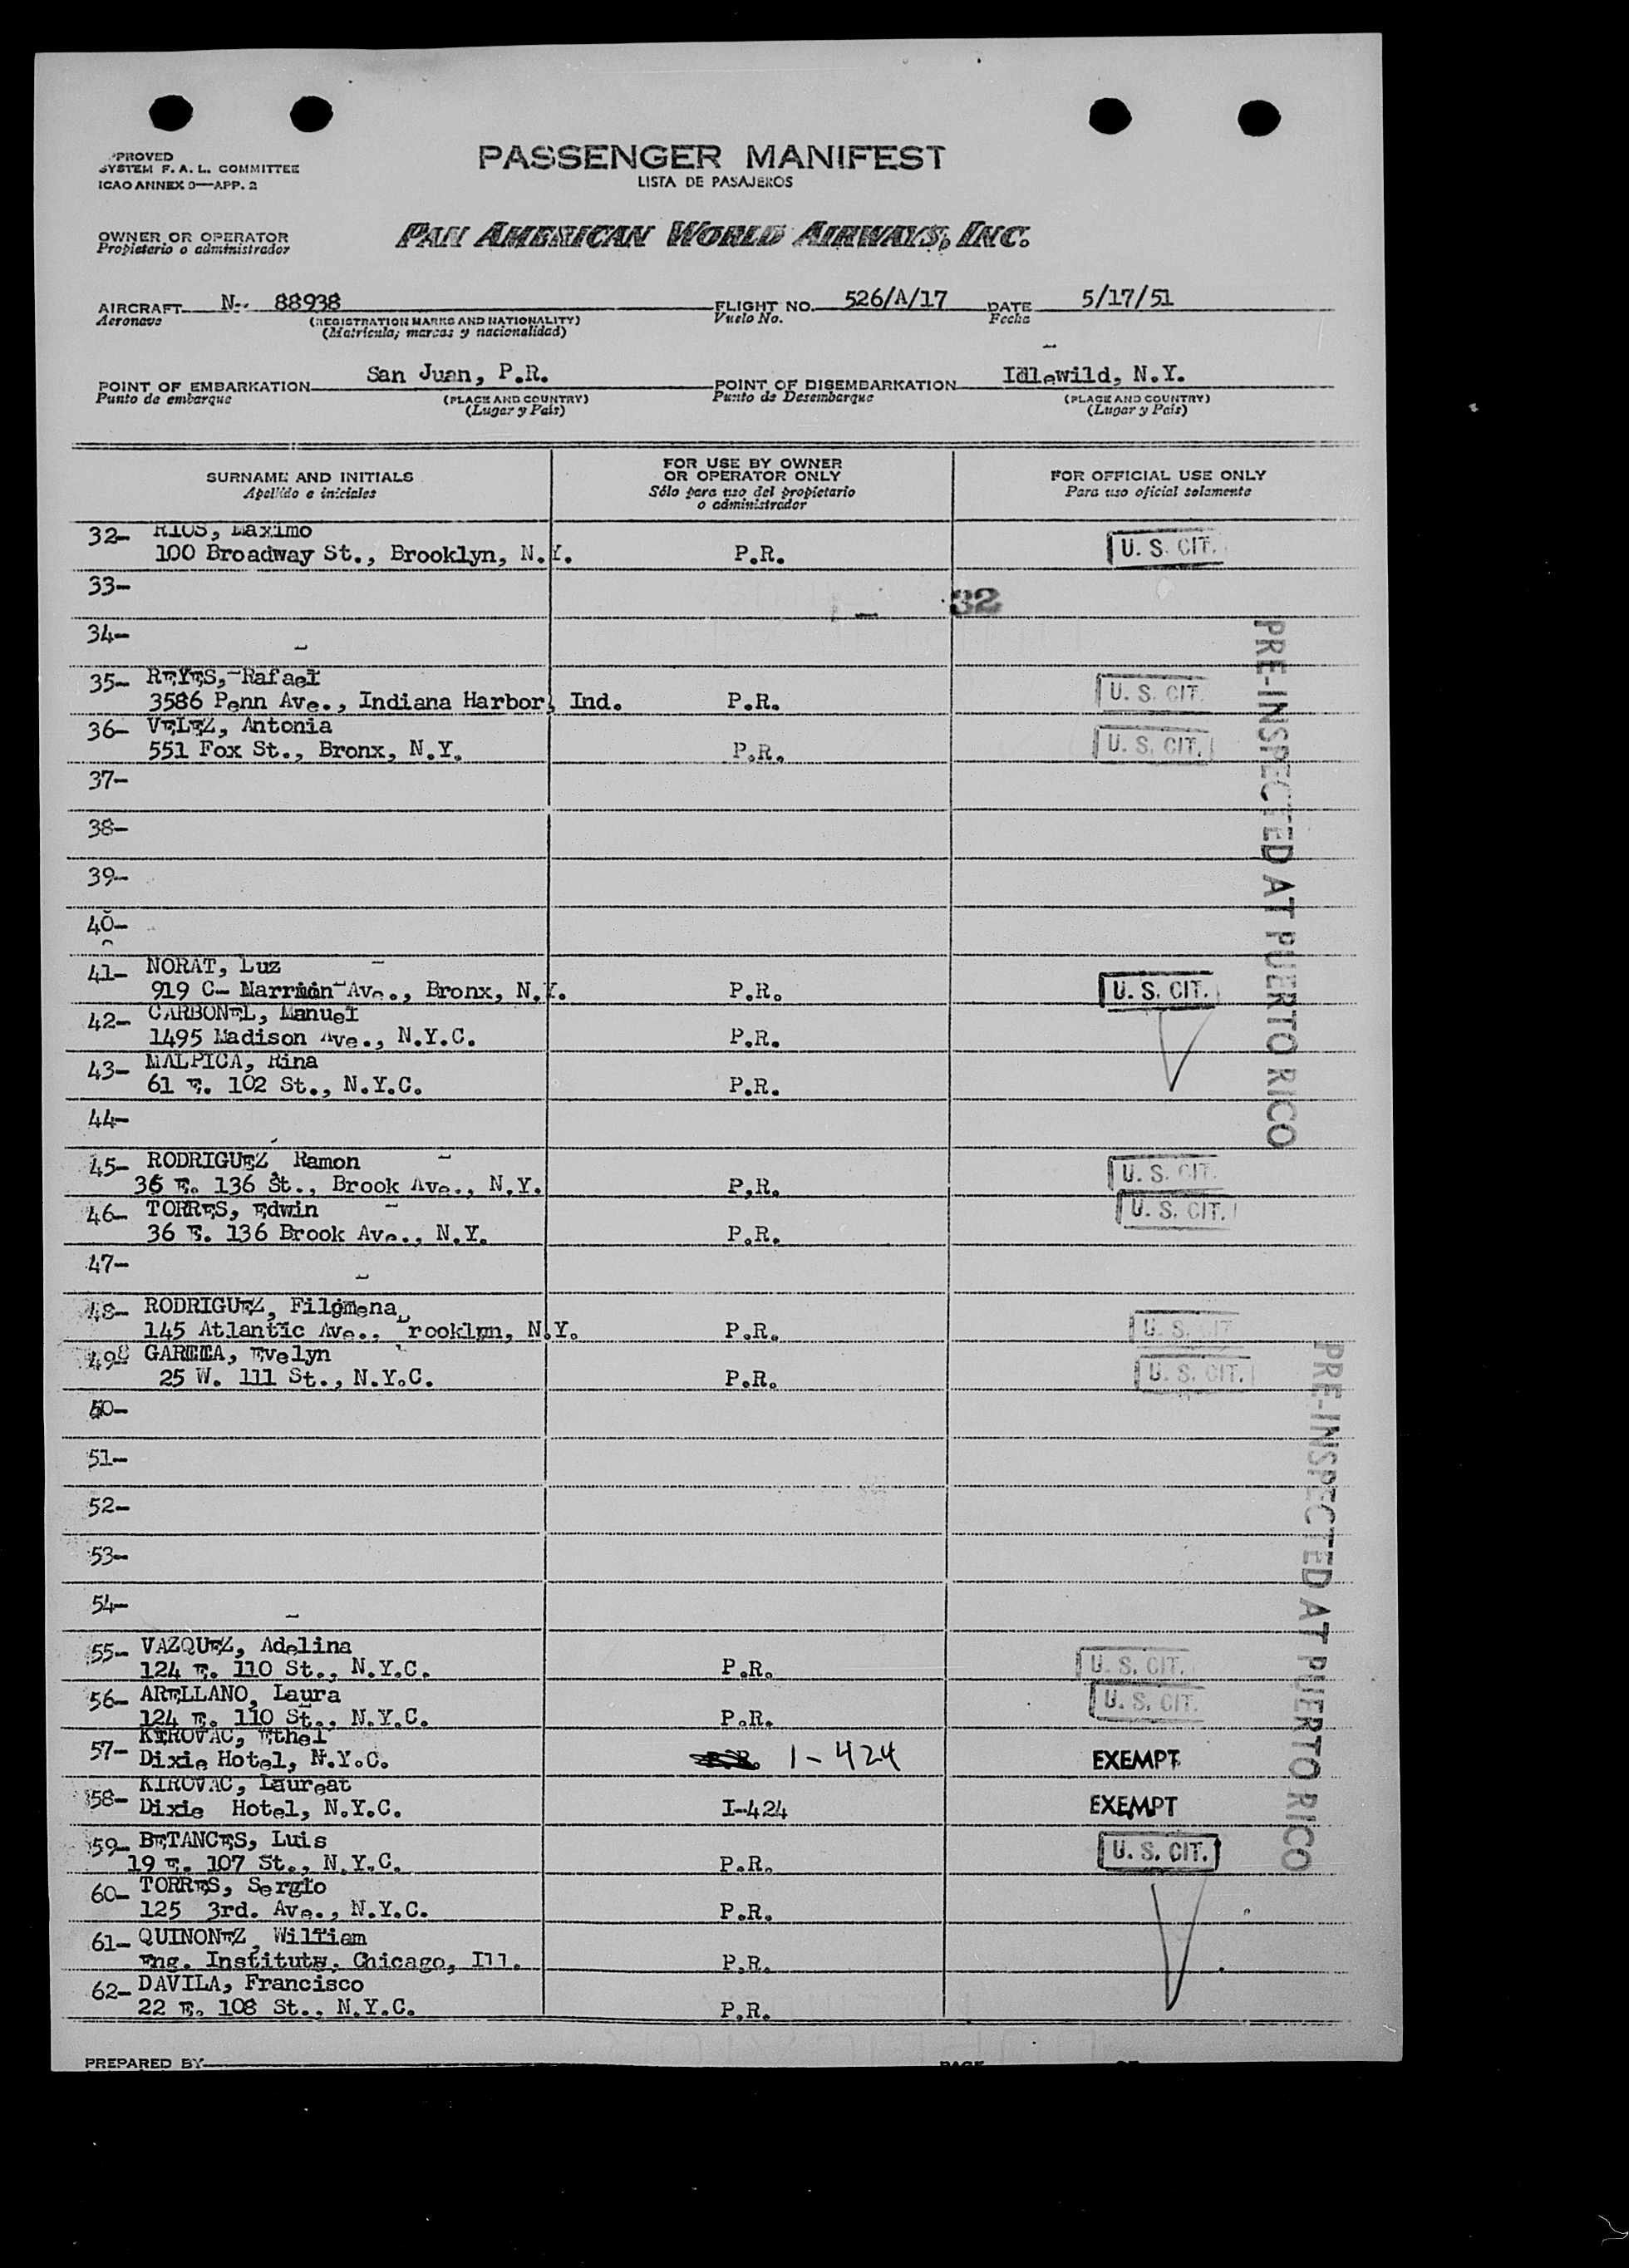 PASSENGER MANIFEST
LISTA DE PASAJEROS
SYSTEM F. A. L. COMMITTEE
ICAO ANNEX 9—APP. 2
OWNER OR OPERATOR
Propietario o administrador
PAN AMERICAN WORLD AIRWAYS, INC.
AIRCRAFT N-- 88938 FLIGHT NO. 526/A/17 DATE 5/17/51
Aeronave (REGISTRATION MARKS AND NATIONALITY) Vuelo No. Fecha
(Matrícula; marcas y nacionalidad)
POINT OF EMBARKATION San Juan, P.R. POINT OF DISEMBARKATION Idlewild, N.Y.
Punto de embarque (PLACE AND COUNTRY) Punto de Desembarque (PLACE AND COUNTRY)
(Lugar y País) (Lugar y País)
SURNAME AND INITIALS FOR USE BY OWNER OR OPERATOR ONLY FOR OFFICIAL USE ONLY
Apellido e iniciales Sólo para uso del propietario o administrador Para uso oficial solamente
32- RIOS, Maximo
100 Broadway St., Brooklyn, N.Y. P.R. U. S. CIT.
33-
32
34-
35- REYES, Rafael
3586 Penn Ave., Indiana Harbor, Ind. P.R. U. S. CIT.
36- VELEZ, Antonia
551 Fox St., Bronx, N.Y. P.R. U. S. CIT.
37-
38-
39-
40-
41- NORAT, Luz
919 C- Ave., Bronx, N.Y. P.R. U. S. CIT.
42- CARBONEL, Manuel
1495 Madison Ave., N.Y.C. P.R.
43- MALPICA, Rina
61 E. 102 St., N.Y.C. P.R.
44-
45- RODRIGUEZ, Ramon
36 E. 136 St., Brook Ave., N.Y. P.R. U. S. CIT.
46- TORRES, Edwin
36 E. 136 Brook Ave., N.Y. P.R. U. S. CIT.
47-
48- RODRIGUEZ, Filomena
145 Atlantic Ave., rooklyn, N.Y. P.R. U. S. CIT
49- GARCIA, Evelyn
25 W. 111 St., N.Y.C. P.R. U. S. CIT.
50-
51-
52-
53-
54-
55- VAZQUEZ, Adelina
124 E. 110 St., N.Y.C. P.R. U. S. CIT.
56- ARELLANO, Laura
124 E. 110 St., N.Y.C. P.R. U. S. CIT.
57- KIROVAC, Ethel
Dixie Hotel, N.Y.C. I-424 EXEMPT
58- KIROVAC, Laureat
Dixie Hotel, N.Y.C. I-424 EXEMPT
59- BETANCES, Luis
19 E. 107 St., N.Y.C. P.R. U. S. CIT.
60- TORRES, Sergio
125 3rd. Ave., N.Y.C. P.R.
61- QUINONEZ, William
Eng. Institute, Chicago, Ill. P.R.
62- DAVILA, Francisco
22 E. 108 St., N.Y.C. P.R.
PRE-INSPECTED AT PUERTO RICO
PRE-INSPECTED AT PUERTO RICO
PREPARED BY